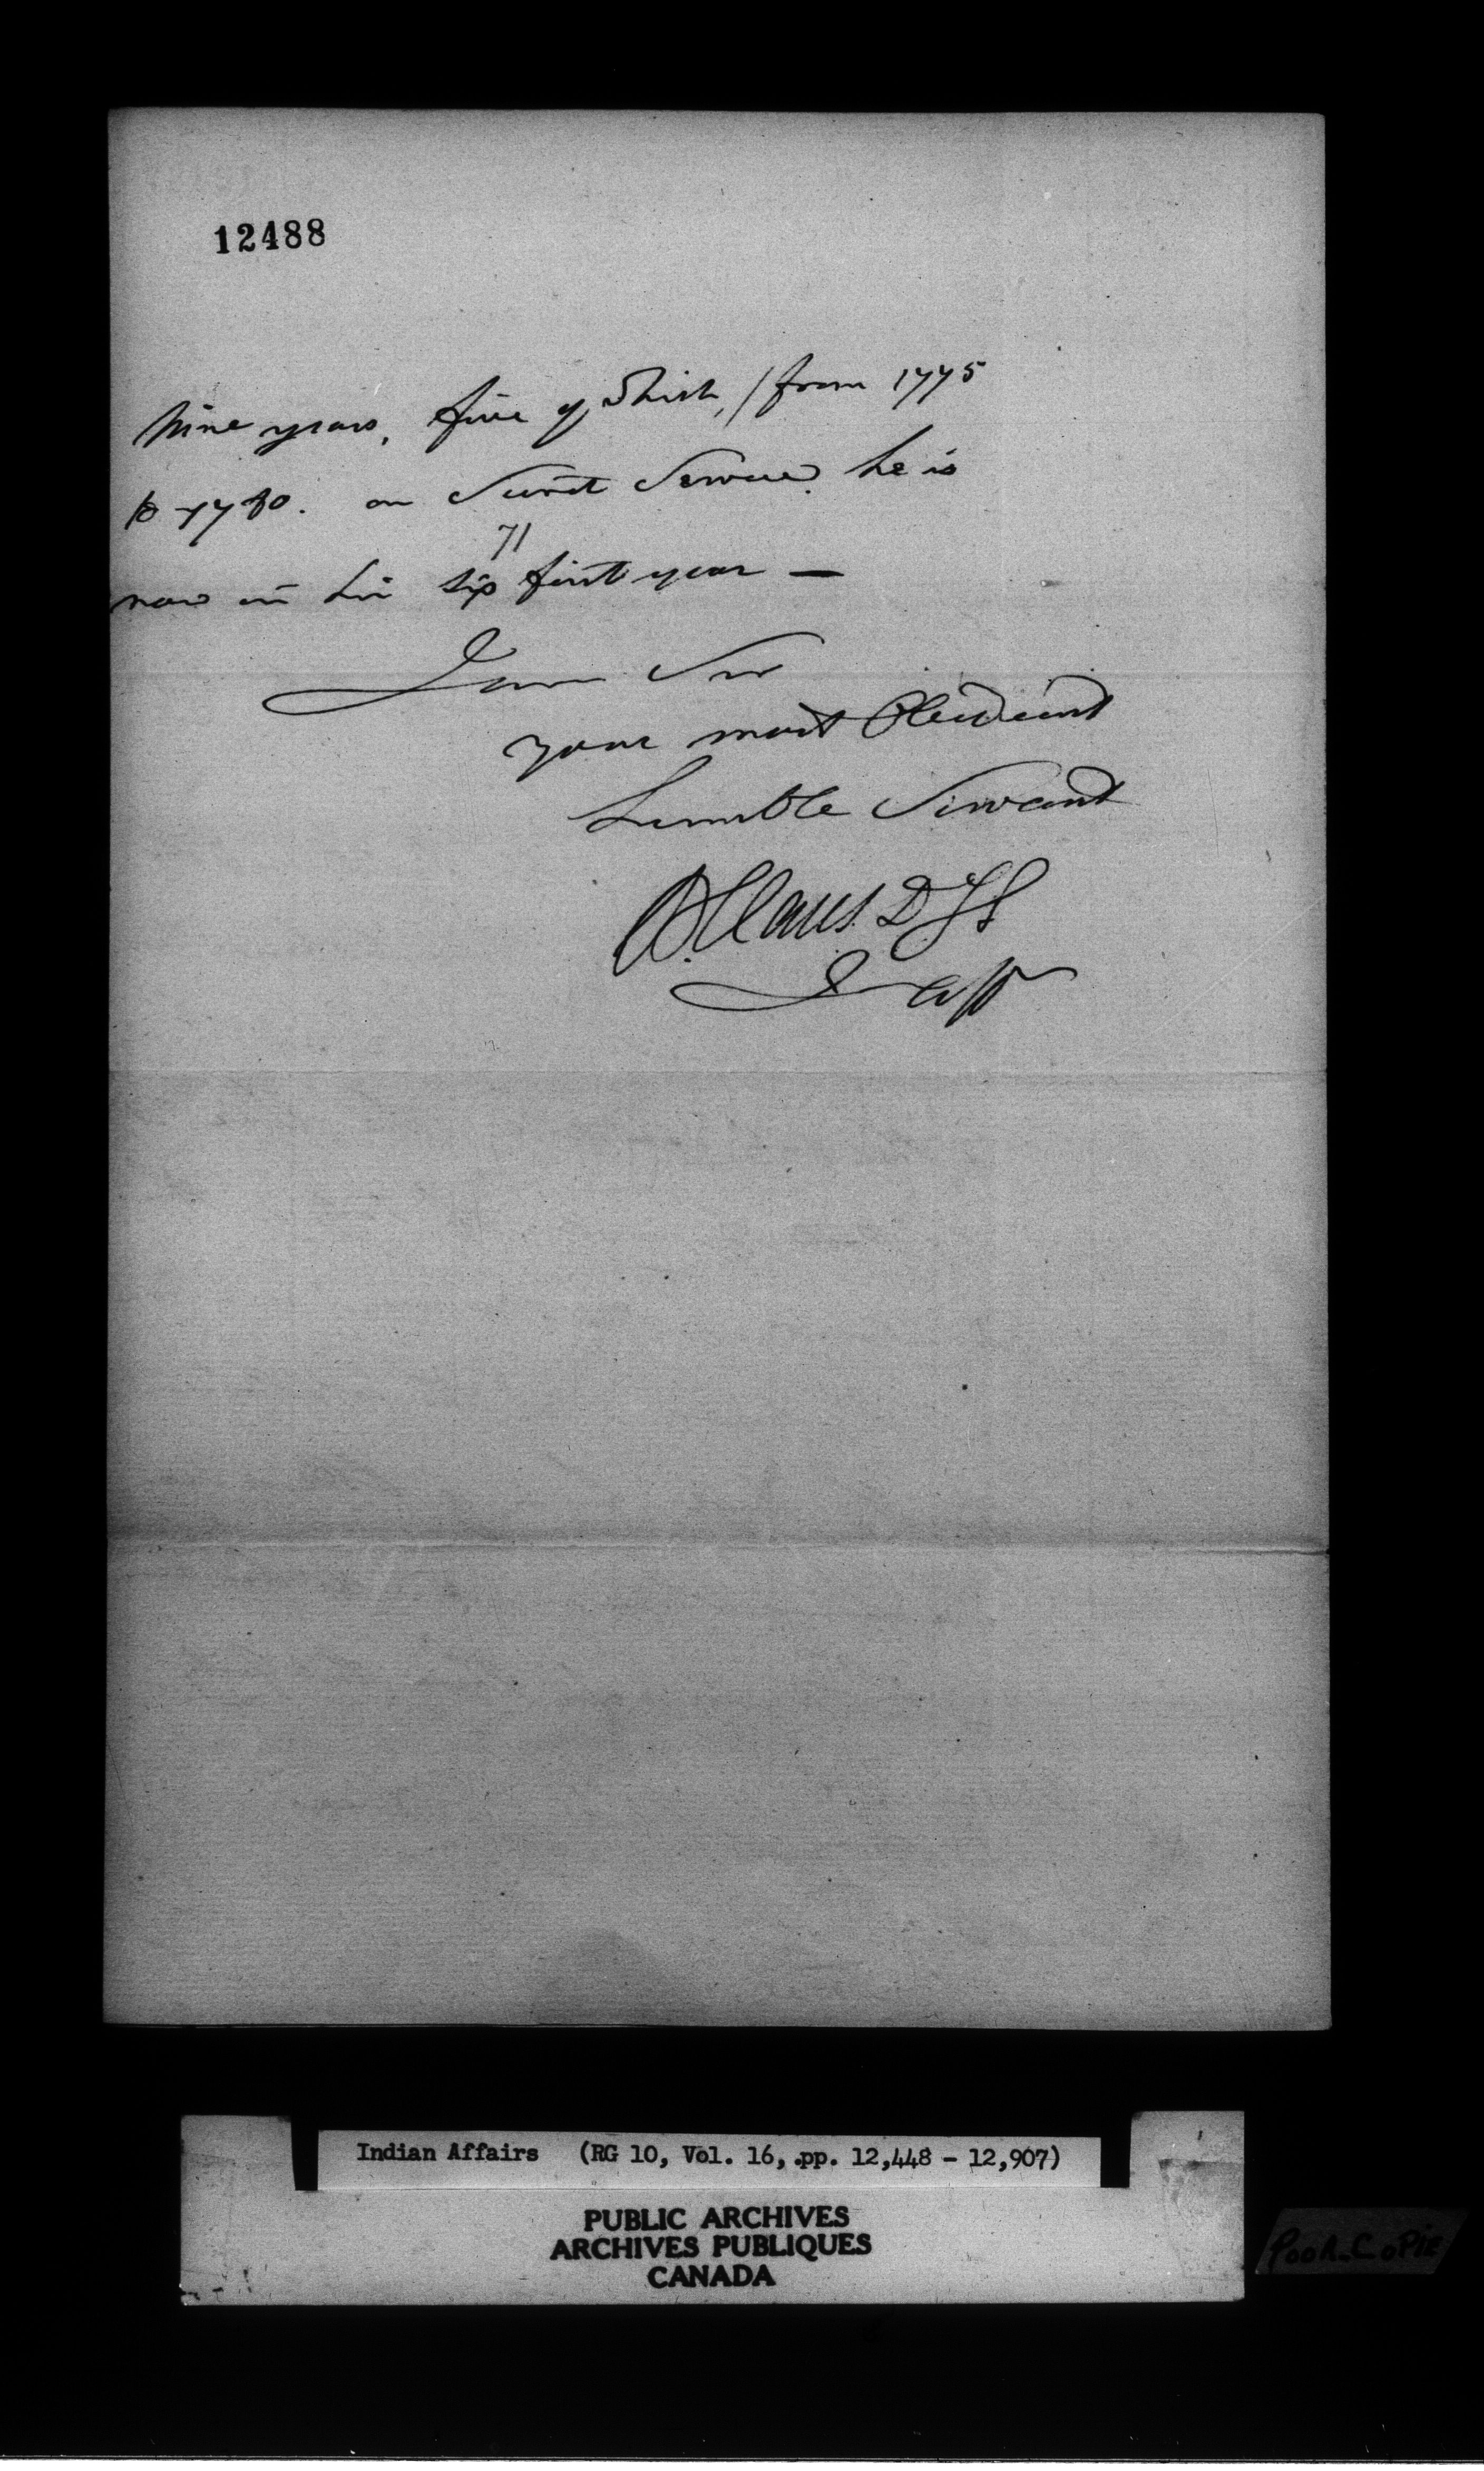 12488
Nine years, five of which, / from 1775
to 1780. on Secret Service. he is
71
now in his six first year —
I am Sir
your most Obedient
humble Servant
W. Claus. D I G
I aff
Indian Affairs (RG 10, Vol. 16, pp. 12,448 - 12,907)
PUBLIC ARCHIVES
ARCHIVES PUBLIQUES
CANADA
POOR COPIE